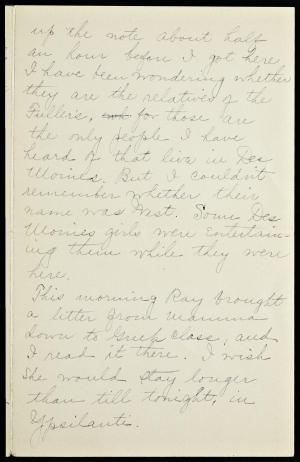 up the note about half
an hour before I got here.
I have been wondering whether
they are the relatives of the
Fullers, for those are
the only people I have
heard of that live in Des
Moines. But I couldn't
remember whether their
name was West. Some Des
Moines girls were entertain-
ing them while they were
here.
This morning Ray brought
a letter from Mamma
down to Greek class, and
I read it there. I wish
she would stay longer
than till tonight, in
Ypsilanti.